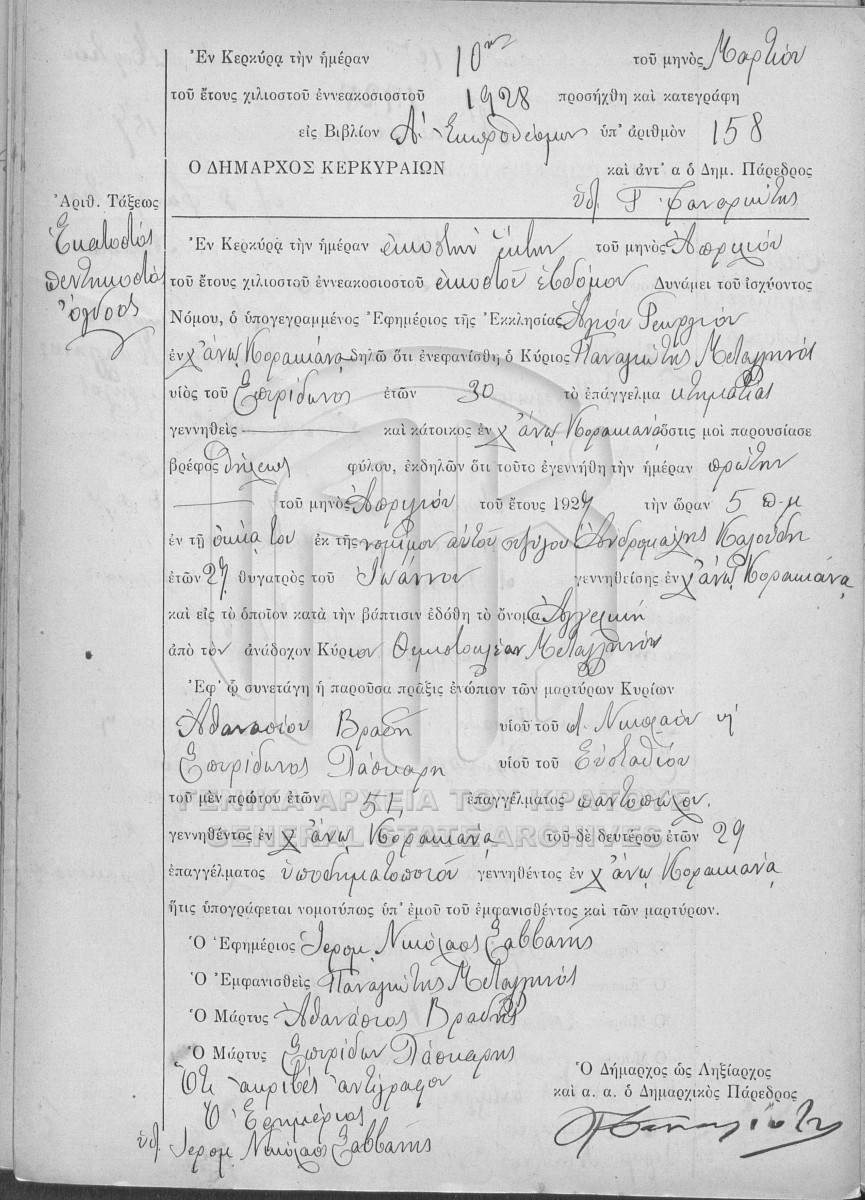 Ἐν Κερκύρᾳ τὴν ἡμέραν 10ην τοῦ μηνὸς Μαρτίου
τοῦ ἔτους χιλιοστοῦ ἐννεακοσιοστοῦ 1928 προσήχθη καὶ κατεγράφη
εἰς Βιβλίον Α' Ἐκπροθέσμων ὑπ' ἀριθμὸν 158
Ο ΔΗΜΑΡΧΟΣ ΚΕΡΚΥΡΑΙΩΝ καὶ ἀντ' α ὁ Δημ. Πάρεδρος
Ἀριθ. Τάξεως
Ἑκατοστὸς
πεντηκοστὸς
ὄγδοος
ὑπ. Γ Φαναριώτης
Ἐν Κερκύρᾳ τὴν ἡμέραν εἰκοστὴν ἕκτην τοῦ μηνὸς Ἀπριλίου
τοῦ ἔτους χιλιοστοῦ ἐννεακοσιοστοῦ εἰκοστοῦ ἑβδόμου Δυνάμει τοῦ ἰσχύοντος
Νόμου, ὁ ὑπογεγραμμένος Ἐφημέριος τῆς Ἐκκλησίας Ἁγίου Γεωργίου
ἐν χ Ἄνω Κορακιάνα δηλῶ ὅτι ἐνεφανίσθη ὁ Κύριος Παναγιώτης Μεταλληνός
υἱὸς τοῦ Σπυρίδωνος ἐτῶν 30 τὸ ἐπάγγελμα κτηματίας
γεννηθεὶς καὶ κάτοικος ἐν χ Ἄνω Κορακιάνα ὅστις μοι παρουσίασε
βρέφος θήλεως φύλου, ἐκδηλῶν ὅτι τοῦτο ἐγεννήθη τὴν ἡμέραν πρώτην
τοῦ μηνὸς Ἀπριλίου τοῦ ἔτους 1927 τὴν ὥραν 5 π.μ
ἐν τῇ οἰκίᾳ του ἐκ τῆς νομίμου αὐτοῦ συζύγου Ἀνδρομάχης Καλούδη
ἐτῶν 27 θυγατρὸς τοῦ Ἰωάννου γεννηθείσης ἐν χ Ἄνω Κορακιάνα
καὶ εἰς τὸ ὁποῖον κατὰ τὴν βάπτισιν ἐδόθη τὸ ὄνομα Ἀγγελική
ἀπὸ τὸν ἀνάδοχον Κύριον Θεμιστοκλέαν Μεταλληνόν
Ἐφ' ᾧ συνετάγη ἡ παροῦσα πρᾶξις ἐνώπιον τῶν μαρτύρων Κυρίων
Ἀθανασίου Βραδῆ υἱοῦ τοῦ Νικολάου
Σπυρίδωνος Λάσκαρη υἱοῦ τοῦ Εὐσταθίου
τοῦ μὲν πρώτου ἐτῶν 51, ἐπαγγέλματος παντοπώλου
ΓΕΝΙΚΑ ΑΡΧΕΙΑ ΤΟΥ ΚΡΑΤΟΥΣ
GENERAL STATE ARCHIVES
γεννηθέντος ἐν χ Ἄνω Κορακιάνα τοῦ δὲ δευτέρου ἐτῶν 29
ἐπαγγέλματος ὑποδηματοποιοῦ γεννηθέντος ἐν χ Ἄνω Κορακιάνα
ἥτις ὑπογράφεται νομοτύπως ὑπ' ἐμοῦ τοῦ ἐμφανισθέντος καὶ τῶν μαρτύρων.
Ὁ Ἐφημέριος Ἱερομ. Νικόλαος Σαββανῆς
Ὁ Ἐμφανισθεὶς Παναγιώτης Μεταλληνός
Ὁ Μάρτυς Ἀθανάσιος Βραδῆς
Ὁ Μάρτυς Σπυρίδων Λάσκαρης
Ὅτι ἀκριβὲς ἀντίγραφον
Ὁ Ἐφημέριος
ὑπ. Ἱερομ. Νικόλαος Σαββανῆς
Ὁ Δήμαρχος ὡς Ληξίαρχος
καὶ α. α. ὁ Δημαρχικὸς Πάρεδρος